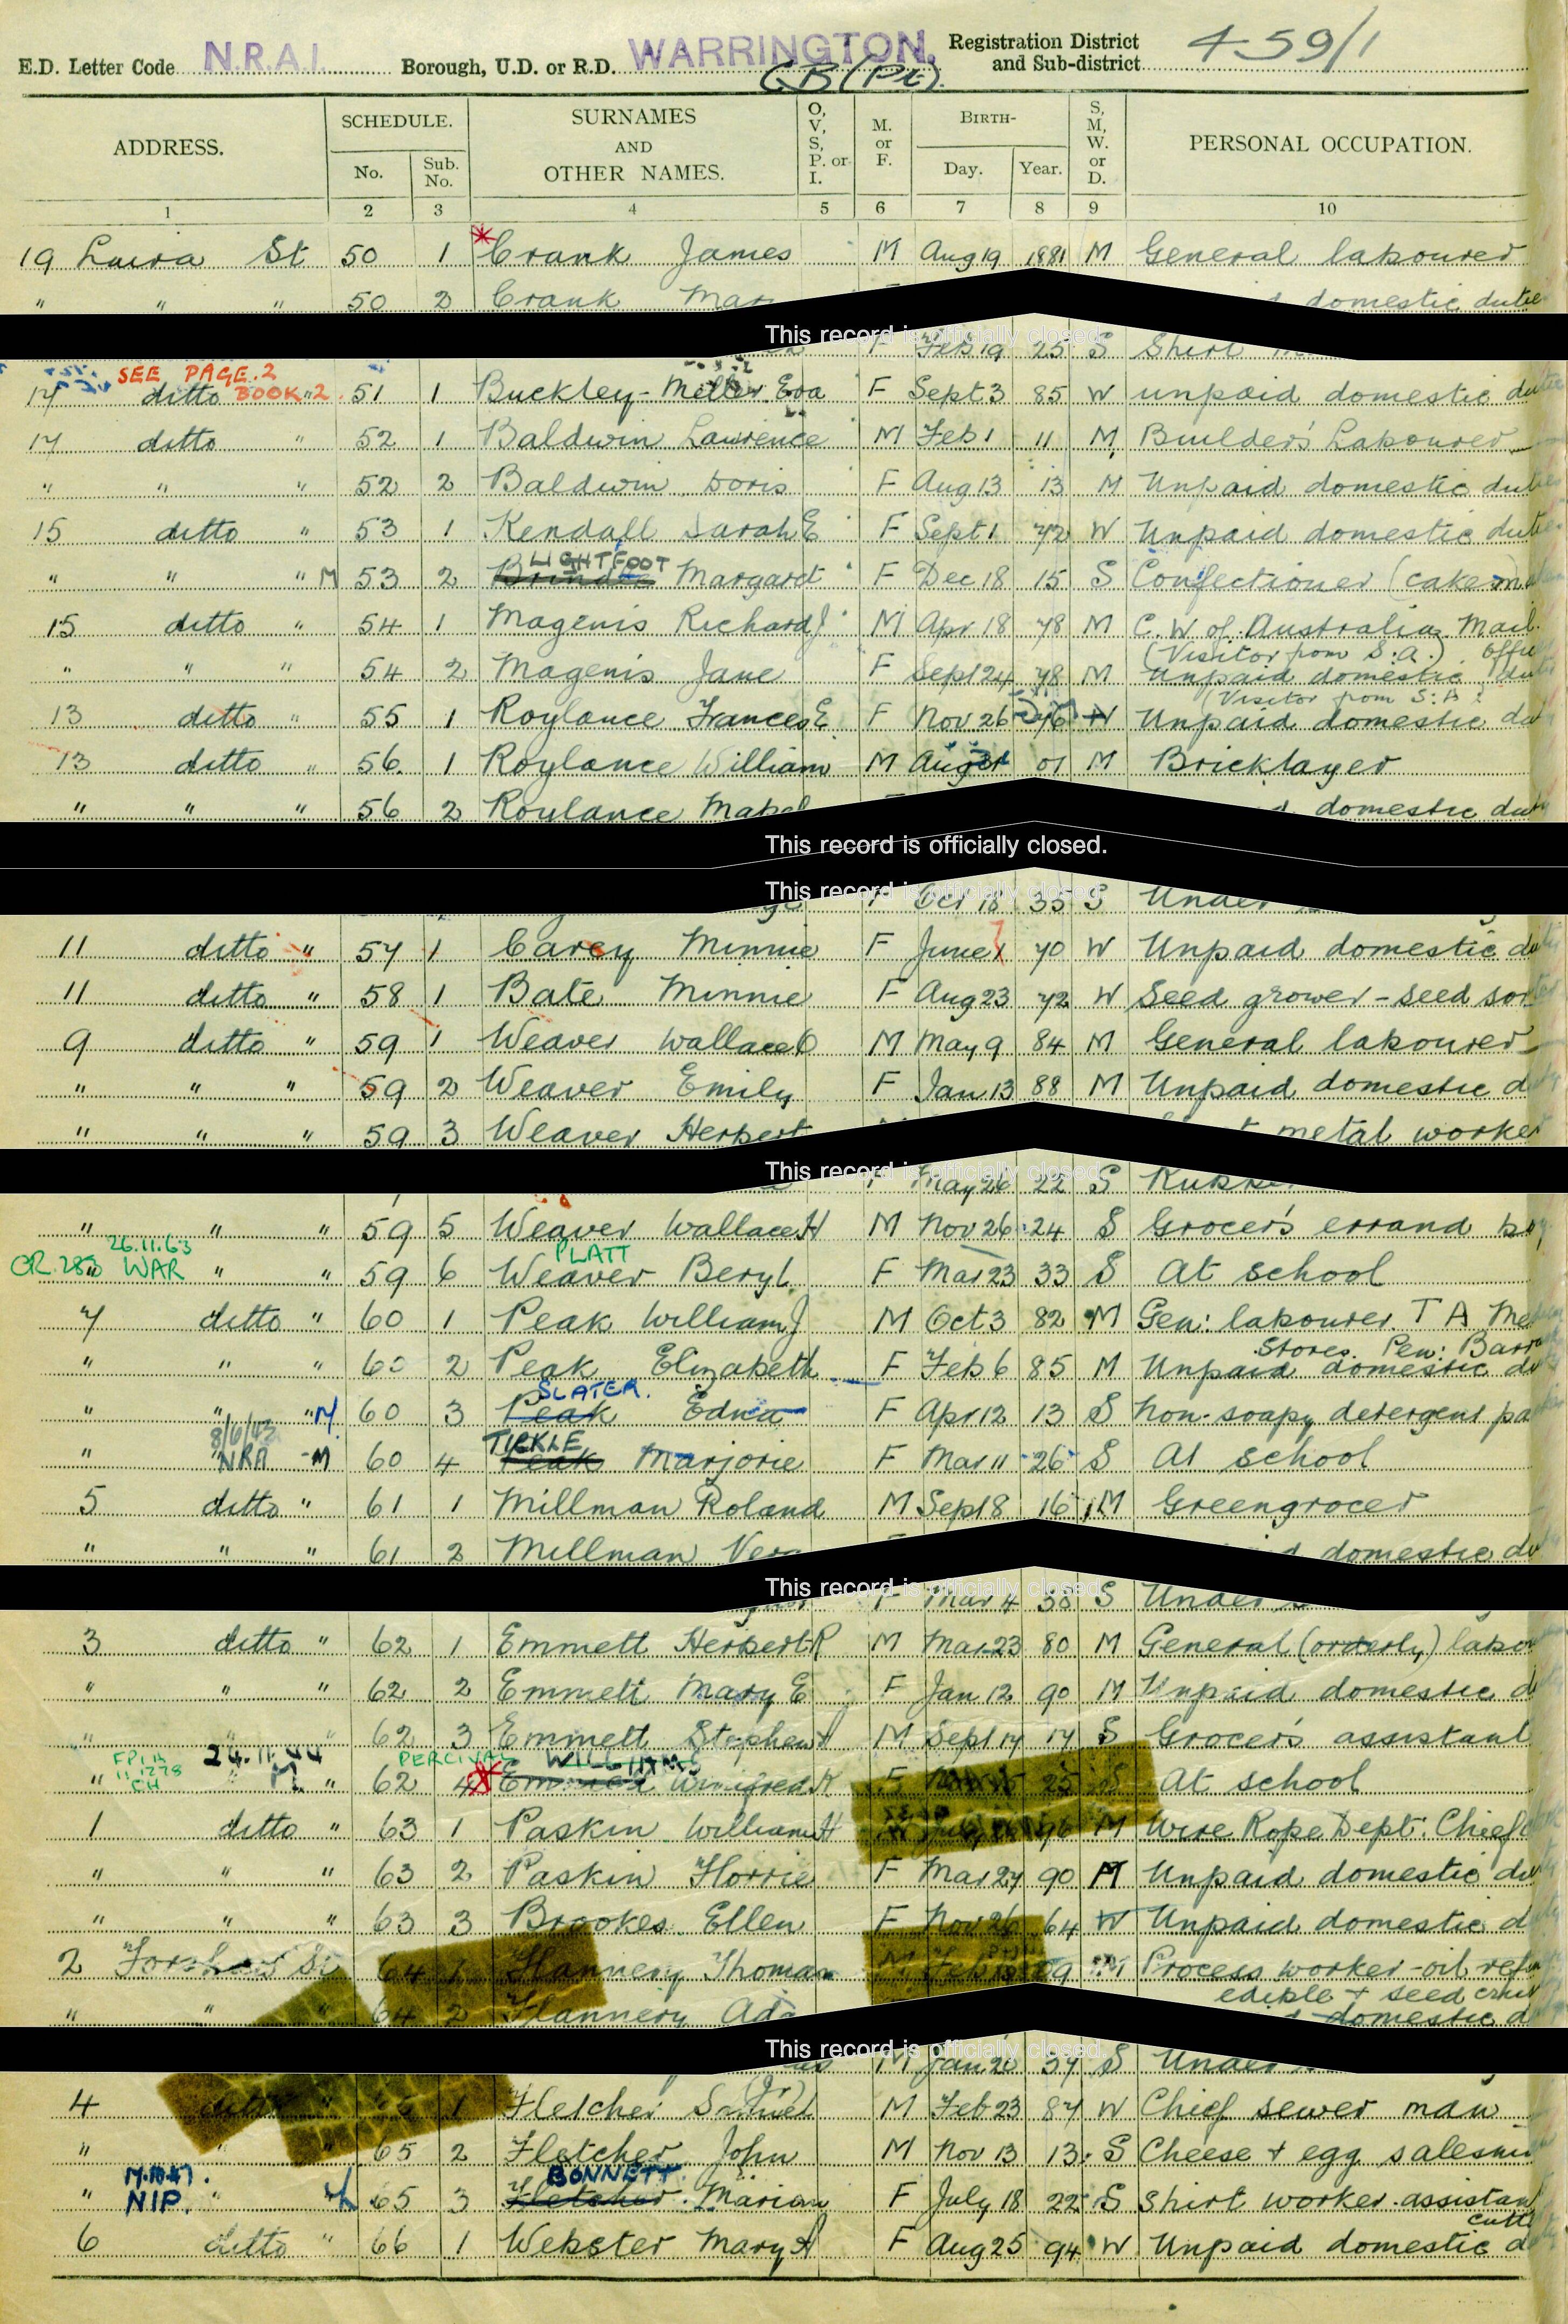 E.D. Letter Code N.R.A.I. Borough, U.D. or R.D. WARRINGTON. C.B (Pt). Registration District and Sub-district 459/1
ADDRESS. SCHEDULE. No. Sub. No. SURNAMES AND OTHER NAMES. O, V, S, P. or I. M. or F. BIRTH- Day. Year. S, M, W. or D. PERSONAL OCCUPATION.
1 2 3 4 5 6 7 8 9 10
19 Laira St 50 1 Crank James M Aug 19 1881 M General labourer
" " " 50 2 Crank domestic dutie
This record is officially closed.
Feb 19 25 S Shirt
SEE PAGE.2 BOOK 2
17 ditto " 51 1 Buckley-Meller Eva F Sept 3 85 W unpaid domestic
17 ditto " 52 1 Baldwin Lawrence M Feb 1 11 M Builder's Labourer
" " " 52 2 Baldwin Doris F Aug 13 13 M Unpaid domestic
15 ditto " 53 1 Kendall Sarah E F Sept 1 72 W Unpaid domestic
LIGHTFOOT
" " " M 53 2 Margaret F Dec 18 15 S Confectioner (cake
15 ditto " 54 1 Magenis Richard J M Apr 18 78 M C. W of Australia Mail
(Visitor from S.A.)
" " " 54 2 Magenis Jane F Sept 24 78 M Unpaid domestic
(Visitor from S.A.
13 ditto " 55 1 Roylance Frances E F Nov 26 76 W Unpaid domestic
13 ditto " 56 1 Roylance William M Aug 01 M Bricklayer
" " " 56 2 Roylance Mabel domestic
This record is officially closed.
This record is officially closed.
Oct 18 35 S Under
11 ditto " 57 1 Carey Minnie F June 1 70 W Unpaid domestic
11 ditto " 58 1 Bate Minnie F Aug 23 72 W Seed grower - seed
9 ditto " 59 1 Weaver Wallace O M May 9 84 M General labourer
" " " 59 2 Weaver Emily F Jan 13 88 M Unpaid domestic
" " " 59 3 Weaver Herbert metal worker
This record is officially closed.
F May 26 22 S
" " " 59 5 Weaver Wallace H M Nov 26 24 S Grocer's errand boy
26.11.63 PLATT
CR.283 WAR " " 59 6 Weaver Beryl F Mar 23 33 S At school
7 ditto " 60 1 Peak William J M Oct 3 82 M Gen: labourer T A
Stores. Pen:
" " " 60 2 Peak Elizabeth F Feb 6 85 M Unpaid domestic
SLATER.
" " " M 60 3 Peak Edna F Apr 12 13 S Non-soapy detergent
8/6/43 TICKLE
" NRA M 60 4 Peak Marjorie F Mar 11 26 S At school
5 ditto " 61 1 Millman Roland M Sep 18 16 M Greengrocer
" " " 61 2 Millman Vera domestic
This record is officially closed.
F Mar 4 38 S Under
3 ditto " 62 1 Emmett Herbert R M Mar 23 80 M General (orderly)
" " " 62 2 Emmett Mary E F Jan 12 90 M Unpaid domestic
" " " 62 3 Emmett Stephen A M Sept 17 17 S Grocer's assistant
24.11.44 PERCIVAL WILLIAMS
CH M " 62 4 Emmett Winifred K F 25 S At school
1 ditto " 63 1 Paskin William H M July 96 M Wire Rope Dept: Chief
" " " 63 2 Paskin Florrie F Mar 27 90 M Unpaid domestic
" " " 63 3 Brookes Ellen F Nov 26 64 W Unpaid domestic
2 Forshaw St 64 1 Flannery Thomas M Feb 09 M Process worker - oil
edible + seed
" " " 64 2 Flannery Ada domestic
This record is officially closed.
M Jan 20 37 S Under
4 ditto " 65 1 Fletcher Samuel M Feb 23 87 W Chief sewer man
" " 65 2 Fletcher John M Nov 13 13 S Cheese + egg
17.10.47. BONNETT
" NIP " 65 3 Fletcher Marian F July 18 22 S Shirt worker assistant
6 ditto " 66 1 Webster Mary A F Aug 25 94 W Unpaid domestic